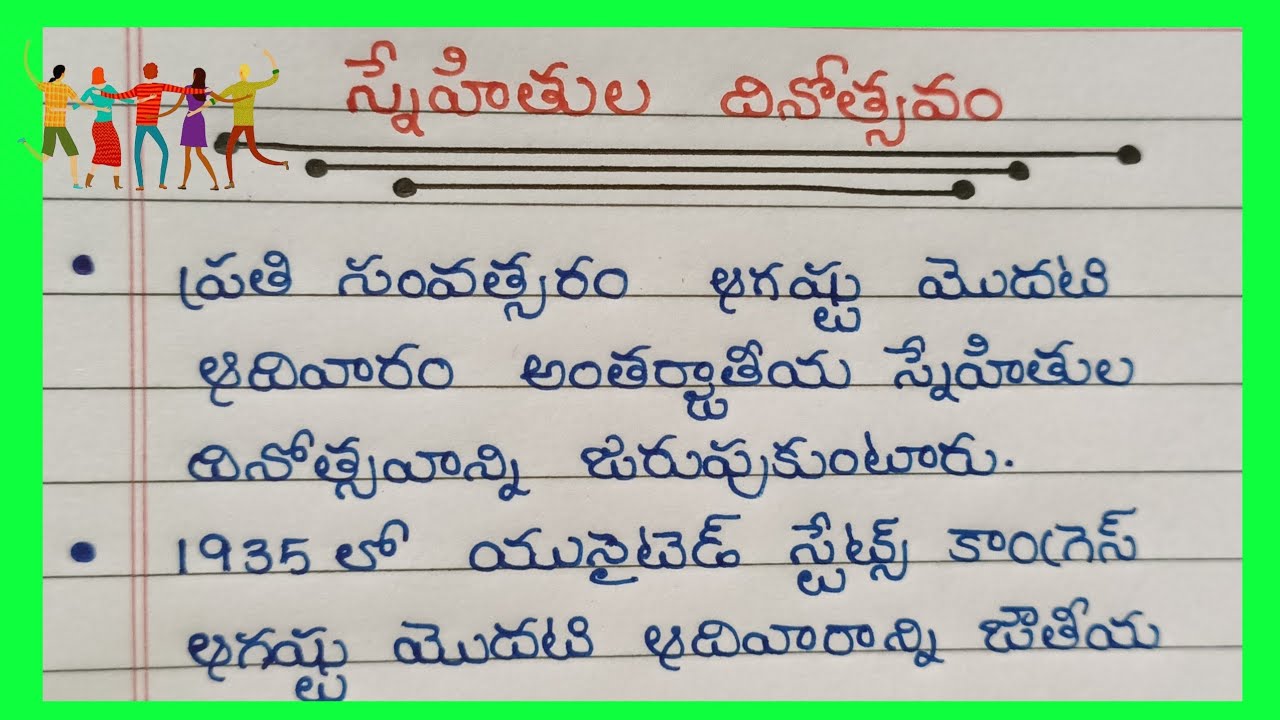 స్నేహితుల దినోత్సవం
• ప్రతి సంవత్సరం ఆగష్టు మొదటి
ఆదివారం అంతర్జాతీయ స్నేహితుల
దినోత్సవాన్ని జరుపుకుంటారు.
• 1935 లో యునైటెడ్ స్టేట్స్ కాంగ్రెస్
ఆగష్టు మొదటి ఆదివారాన్ని జాతీయ